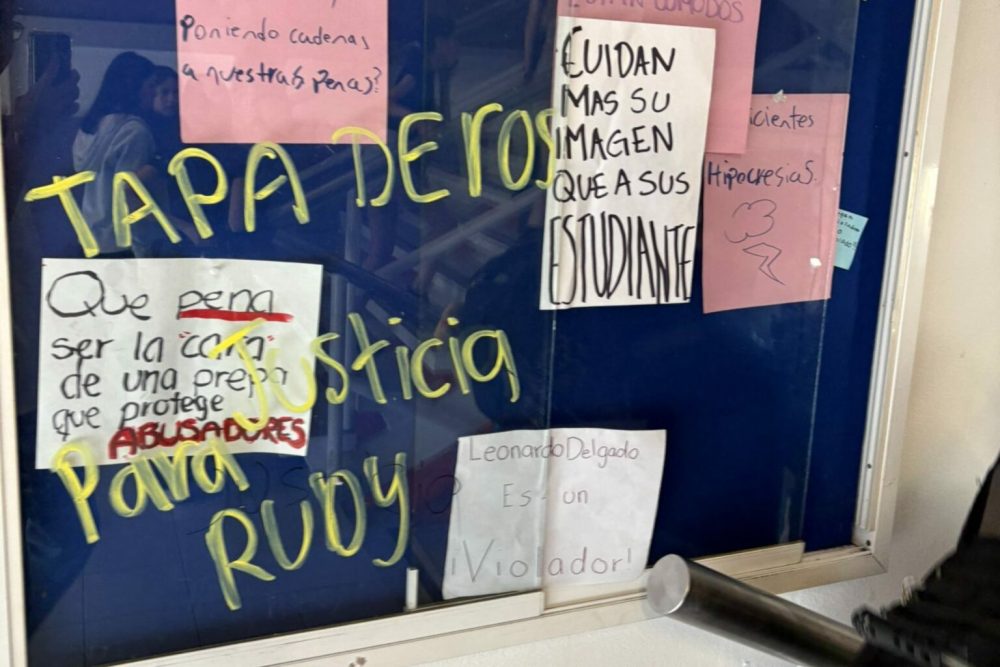 Poniendo cadenas
a nuestras penas?
ESTAN COMODOS
CUIDAN
MAS SU
IMAGEN
QUE A SUS
ESTUDIANTE
Hipocresias.
TAPADEROS
Que pena
ser la "cara"
de una prepa
que protege
ABUSADORES
Justicia
Para
RUDY
Leonardo Delgado
Es un
¡Violador!